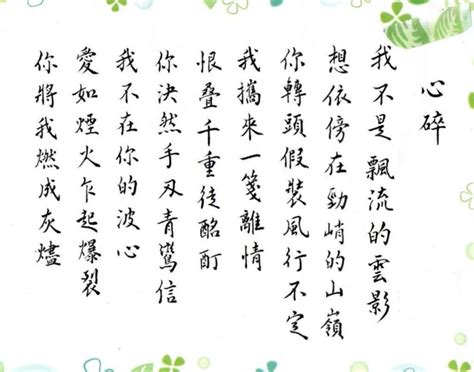 心碎
我不是飄流的雲影
想依傍在勁峭的山嶺
你轉頭假裝風行不定
我攜來一箋離情
恨叠千重徒酩酊
你決然手刃青鸞信
我不在你的波心
愛如煙火乍起爆裂
你將我燃成灰燼